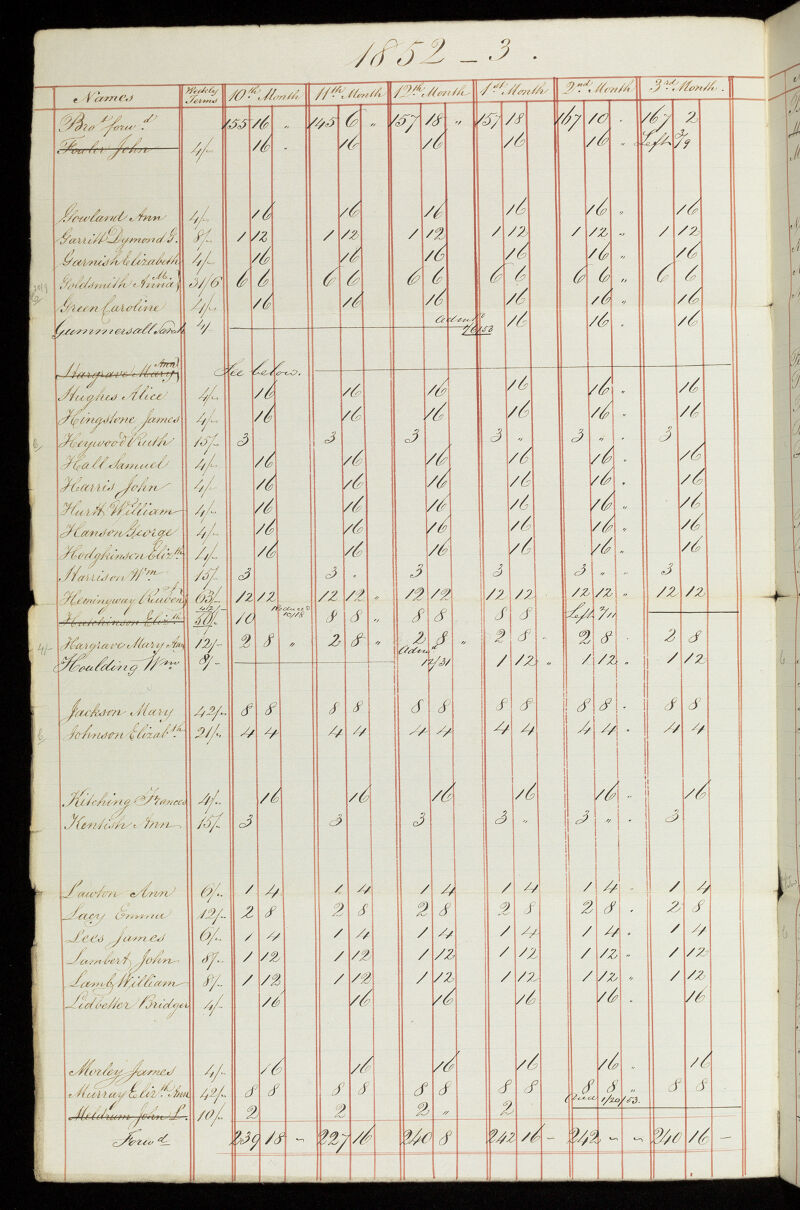 1852 – 3 .
Names Weekly Terms 10th Month 11th Month 12th Month 1st Month 2nd Month 3rd Month .
Brot forwd 155 16 " 145 6 " 157 18 " 157 18 167 10 . 167 2
Fowler John 4/- 16 . 16 16 16 16 " Left 3/9
Gowland Ann 4/- 16 16 16 16 16 " 16
Garritt Dymond G. 8/- 1 12 1 12 1 12 1 12 1 12 " 1 12
Garnish Elizabeth 4/- 16 16 16 16 16 " 16
Goldsmith Anna M. 31/6 6 6 6 6 6 6 6 6 6 6 " 6 6
Green Caroline 4/- 16 16 16 16 16 " 16
Gummersall Sarah 4/- admtd 1/6/53 16 16 . 16
Hargrave Mary Ann See below.
Hughes Alice 4/- 16 16 16 16 16 . 16
Hingstone James 4/- 16 16 16 16 16 " 16
Heywood Ruth 15/- 3 3 3 3 " 3 " . 3
Hall Samuel 4/- 16 16 16 16 16 . 16
Harris John 4/- 16 16 16 16 16 . 16
Hurtt William 4/- 16 16 16 16 16 " 16
Hanson George 4/- 16 16 16 16 16 " 16
Hodgkinson Elizth 4/- 16 16 16 16 16 " 16
Harrison Wm 15/- 3 3 . 3 3 3 " " 3
Hemingway Reuben J. 63/- 12 12 12 12 " 12 12 12 12 12 12 " 12 12
Hutchinson Elizth 42/- 50/- 10 Reduced 10/18 8 8 " 8 8 8 8 Left 2/11
4/- Hargrave Mary Ann 12/- 2 8 " 2 8 " 2 8 " 2 8 . 2 8 . 2 8
Houlding Wm 8/- admd 12/31 1 12 " 1 12 " 1 12
Jackson Mary 42/- 8 8 8 8 8 8 8 8 8 8 . 8 8
Johnson Elizabth 21/- 4 4 4 4 4 4 4 4 4 4 . 4 4
Kitching Frances 4/- 16 16 16 16 16 " 16
Kentish Ann 15/- 3 3 3 3 " 3 " . 3
Lawton Ann 6/- 1 4 1 4 1 4 1 4 1 4 . 1 4
Lacy Emma 12/- 2 8 2 8 2 8 2 8 2 8 . 2 8
Lees James 6/- 1 4 1 4 1 4 1 4 1 4 . 1 4
Lambert John 8/- 1 12 1 12 1 12 1 12 1 12 " 1 12
Lamb William 8/- 1 12 1 12 1 12 1 12 1 12 " 1 12
Lidbetter Bridger 4/- 16 16 16 16 16 . 16
Morley James 4/- 16 16 16 16 16 " 16
Murray Elizth Ann 42/- 8 8 8 8 8 8 8 8 8 8 " 8 8
Meldrum John L. 10/- 2 2 2 " 2 Died 1/20/53.
Forwd 239 18 " 227 16 240 8 242 16 – 242 " " 240 16 –